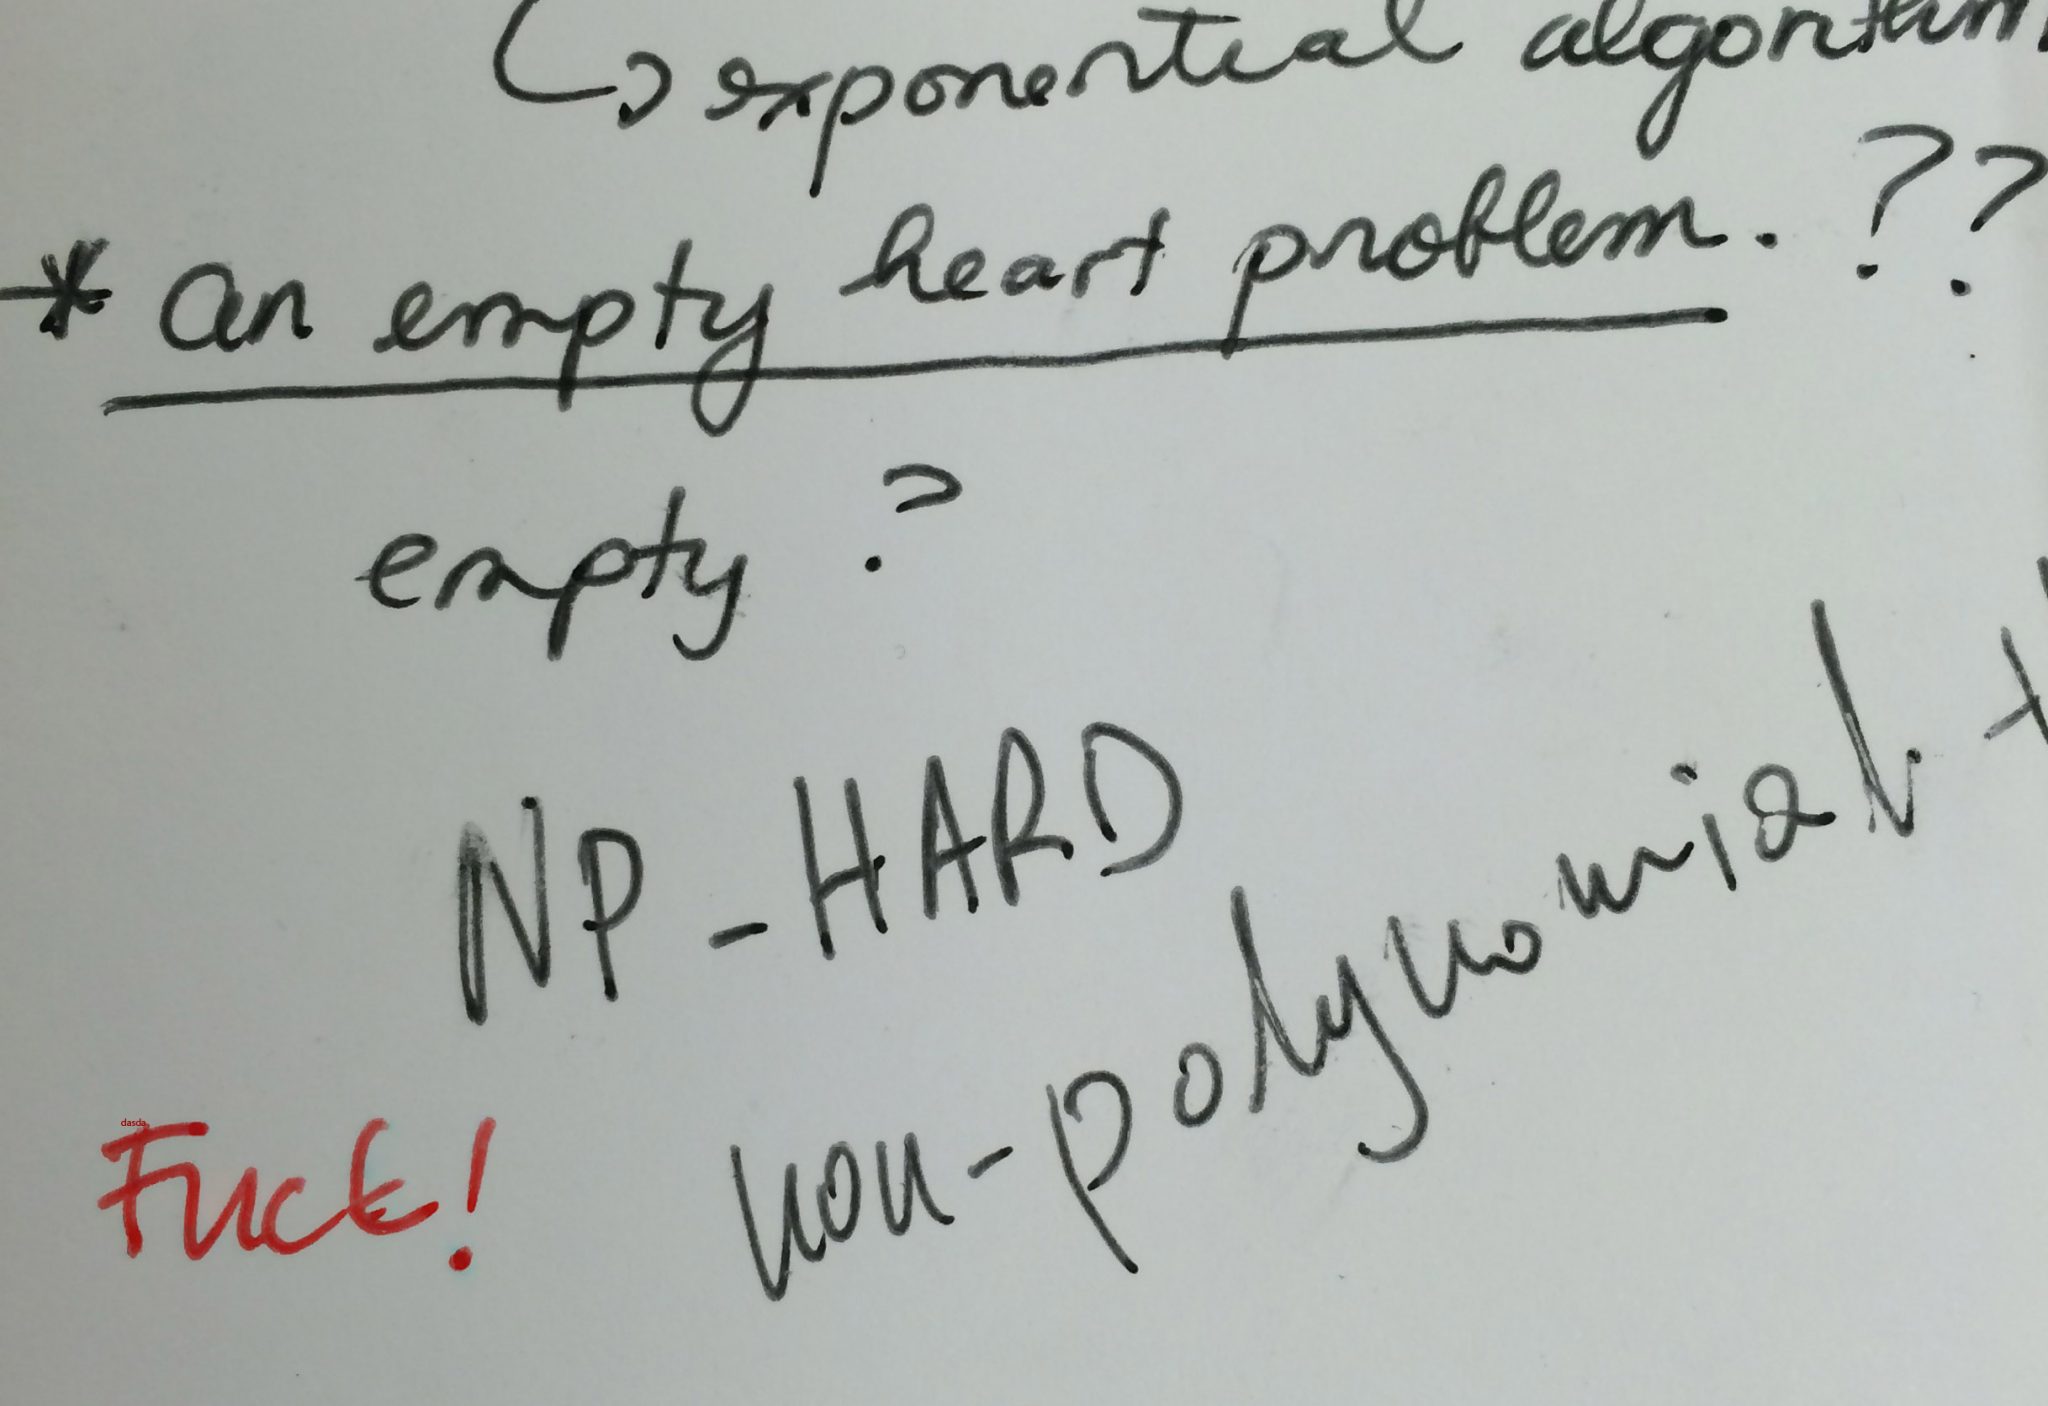 exponential algorithm
* an empty heart problem. ??
empty ?
NP - HARD
non-polynomial
dasda
Fuck!